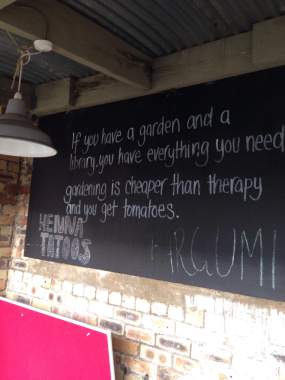 If you have a garden and a
library, you have everything you need
gardening is cheaper than therapy
and you get tomatoes.
HENNA
TATOOS
ARGUMI